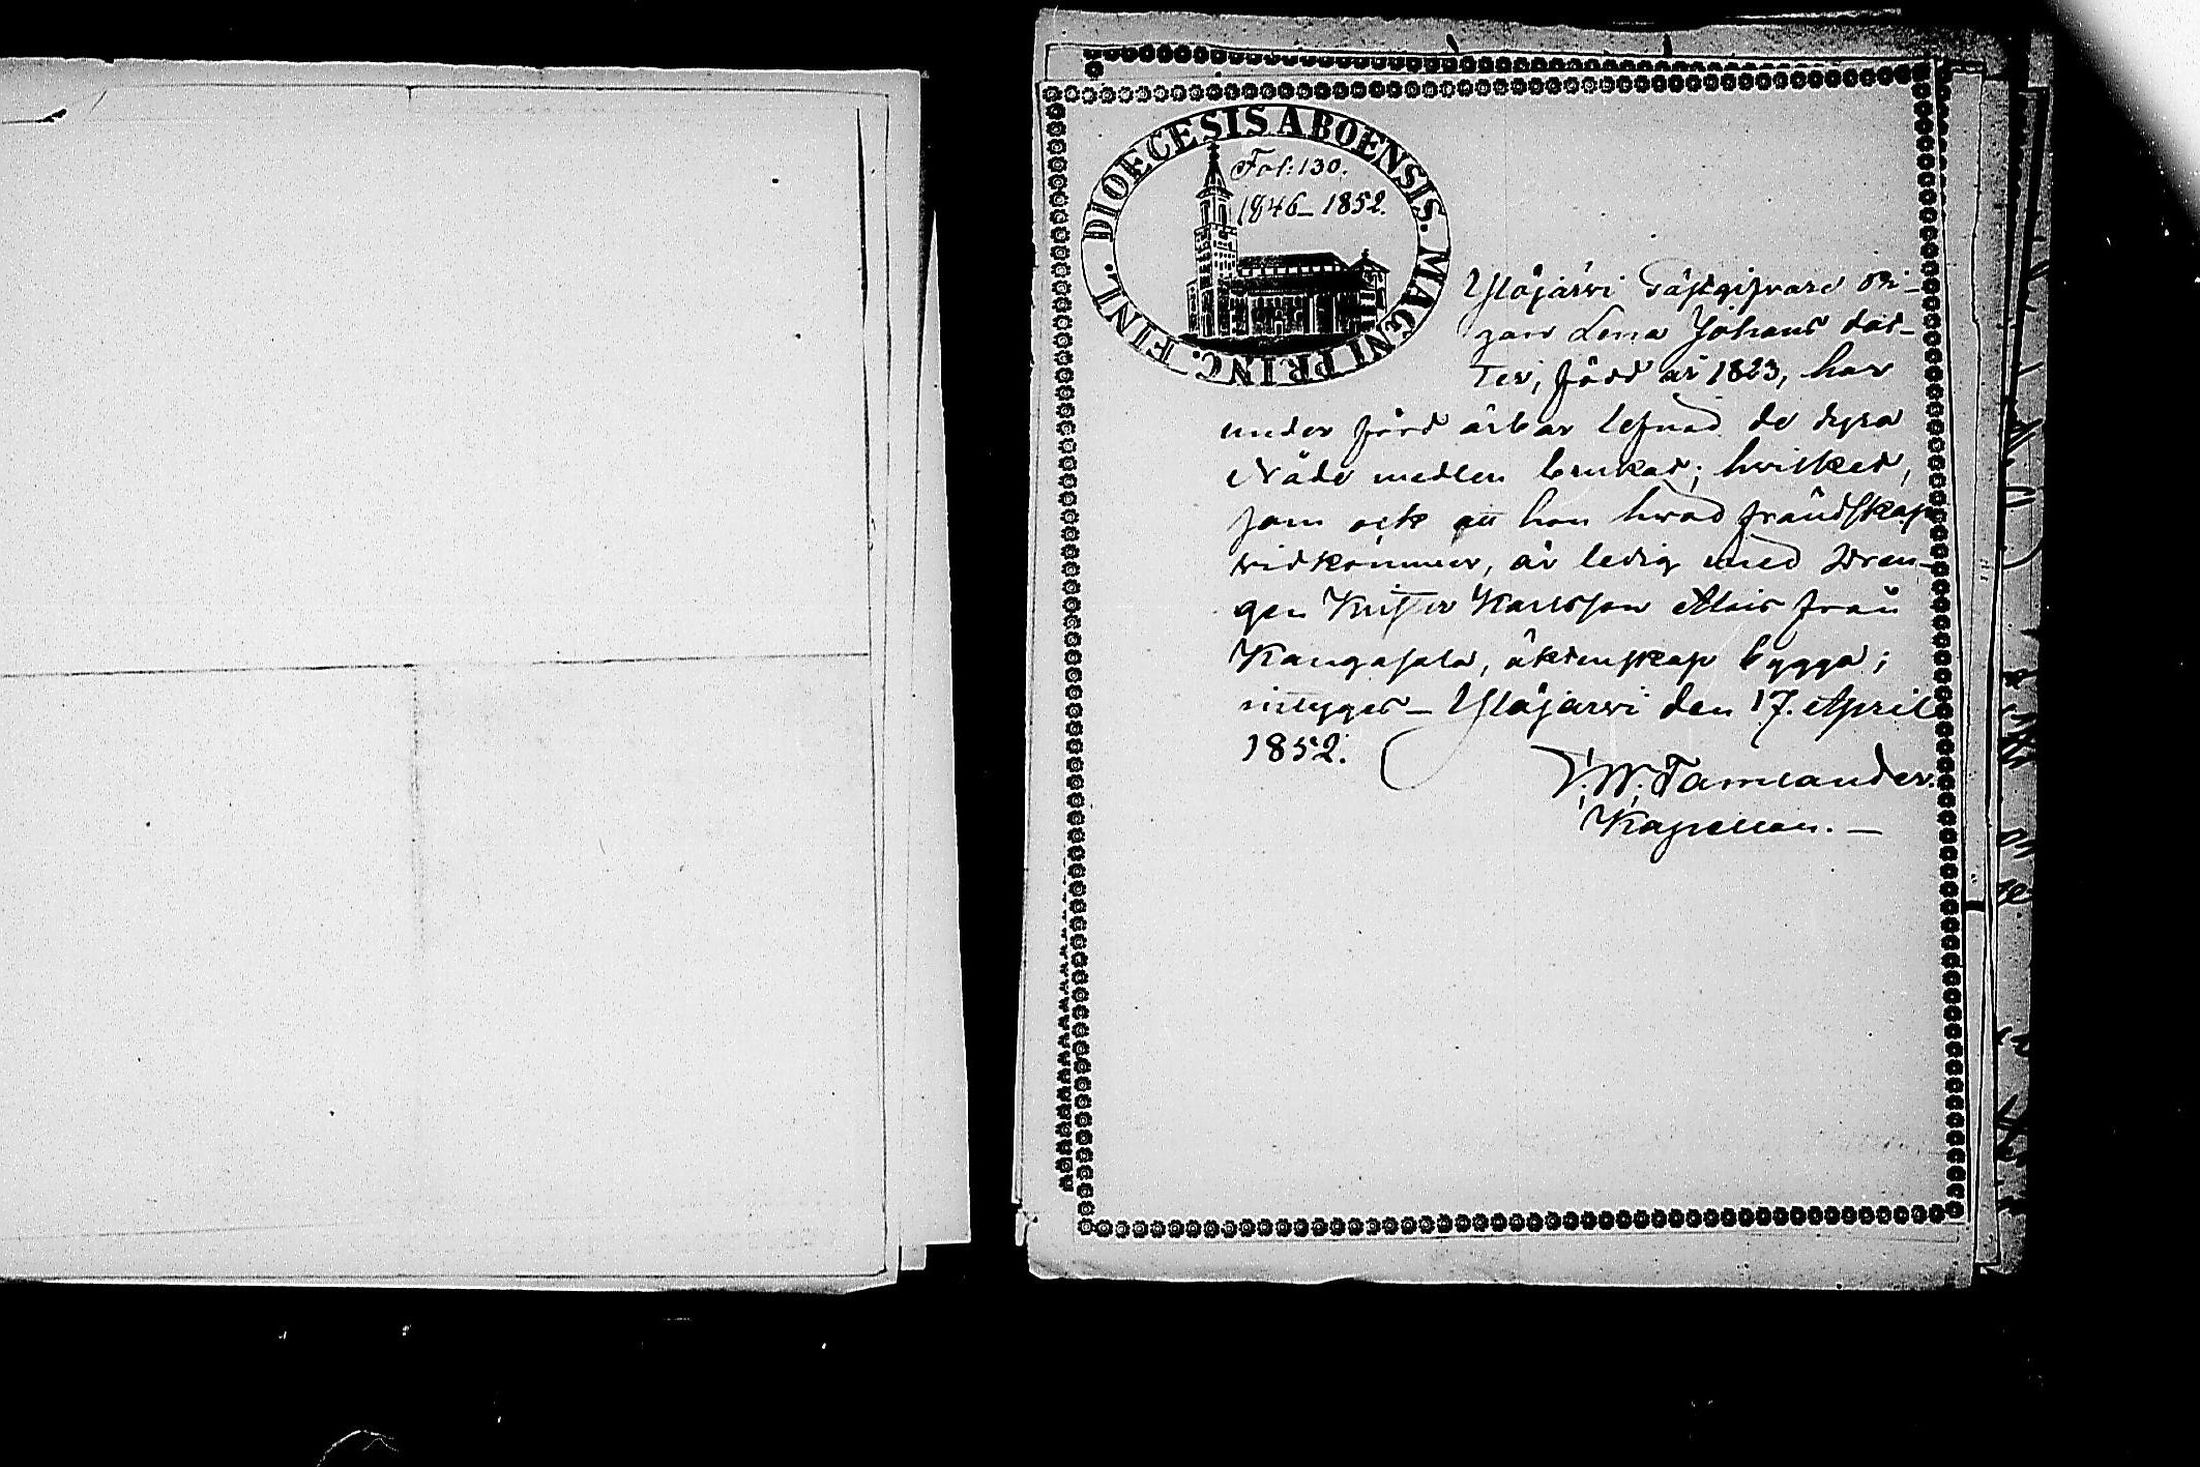 DIOECESIS ABOENSIS. MAGNI PRINC. FINL.
Fol: 130.
1846–1852.
Ylöjärvi Gästgifvare Pi-
gan Lena Johans dot-
ter, född år 1823, har
under förd ärbar lefnad de dyra
Nåde medlen brukat; hvilket,
som ock att hon hvad frändskap
vidkommer, är ledig med Dren-
gen Krister Karlsson Alais från
Kangasala, äktenskap bygga;
intygas – Ylöjärvi den 17. April
1852.
Tamlander.
Kapellan. –